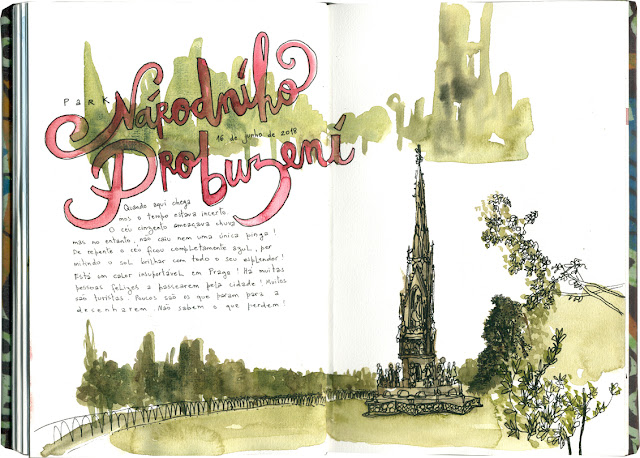 Park
Národního
16 de junho de 2018
Probuzení
Quando aqui chega
mos o tempo estava incerto
O céu cinzento ameaçava chuva
mas no entanto, não caiu nem uma única pinga!
De repente o céu ficou completamente azul, per
mitindo o sol brilhar com todo o seu esplendor!
Está um calor insuportável em Praga! Há muitas
pessoas felizes a passearem pela cidade! Muitos
são turistas. Poucos são os que param para a
decenharem. Não sabem o que perdem!